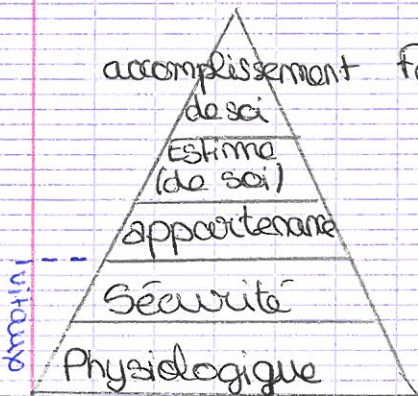 accomplissement
de soi
Estime
(de soi)
appartenance
Sécurité
Physiologique
vitaux